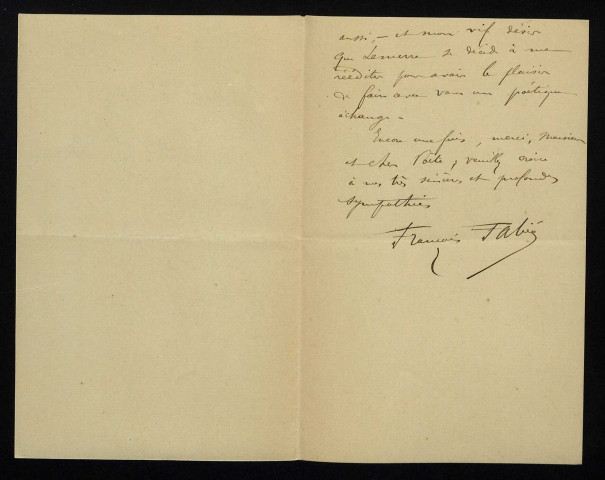 aussi, – et mon vif désir
que Lemerre se décide à me
rééditer pour avoir le plaisir
de faire avec vous un poétique
échange.
Encore une fois, merci, Monsieur
et cher Poète, veuillez croire
à mes très sincères et profondes
sympathies
François Fabié